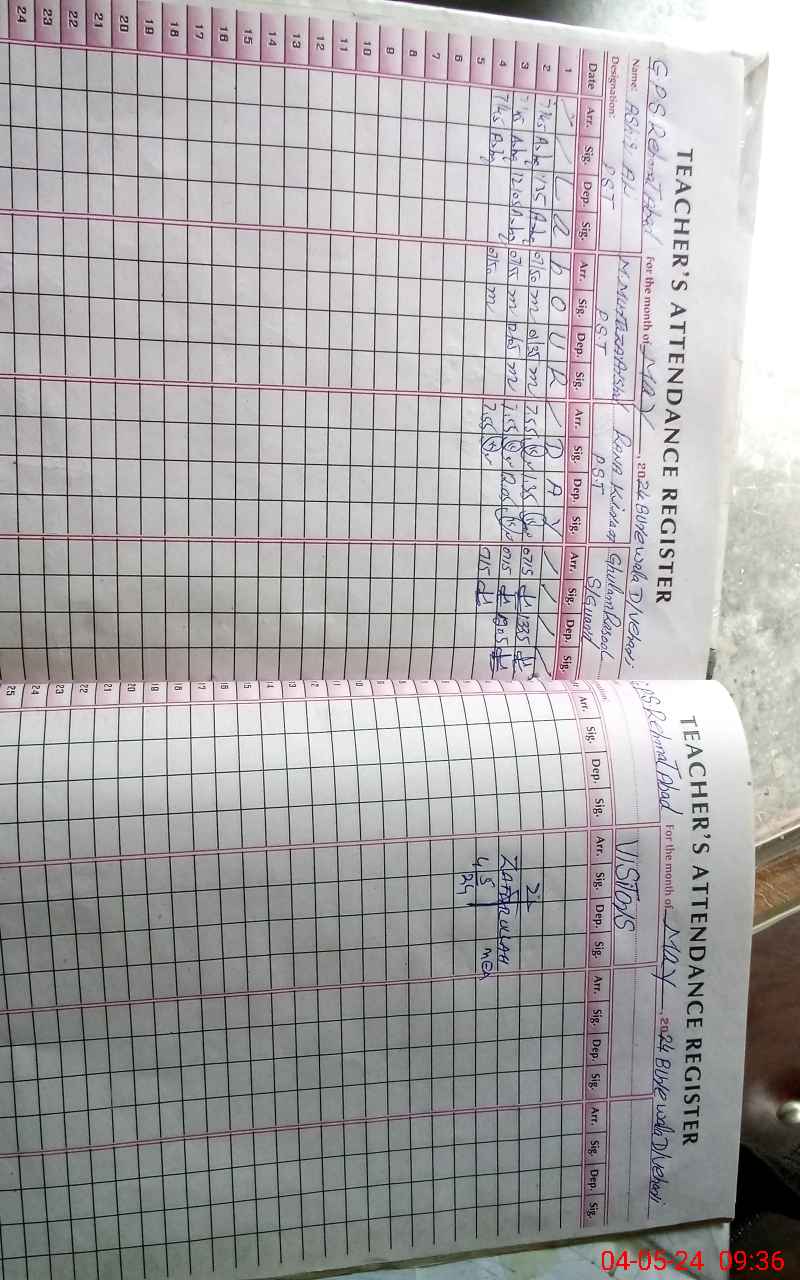 TEACHER'S ATTENDANCE REGISTER
GPS Rehmat Abad For the month of MAY, 2024 Burewala D/Vehari
Name: M. Murtaza Ghulam Rasool
Designation: PST PST PST S/Guard
Date Arr. Sig. Dep. Sig. Arr. Sig. Dep. Sig. Arr. Sig. Dep. Sig. Arr. Sig. Dep. Sig.
1 L a b O U R D A Y
2 7:45 1:35 07:50 m 01:35 m 7:55 1:35 0715 1335
3 7:45 12:05 07:55 m 12:05 m 7:55 12:05 0715 1205
4 7:45 07:50 m 7:55 0715
5
6
7
8
9
10
11
12
13
14
15
16
17
18
19
20
21
22
23
24
TEACHER'S ATTENDANCE REGISTER
GPS Rehmat Abad For the month of MAY, 2024 Burewala D/Vehari
VISITORS
Arr. Sig. Dep. Sig. Arr. Sig. Dep. Sig. Arr. Sig. Dep. Sig. Arr. Sig. Dep. Sig.
ZAFAR ULLAH
4/5/24 MEA
10
11
12
13
14
15
16
17
18
19
20
21
22
23
24
25
04-05-24 09:36